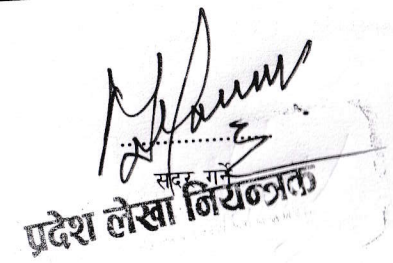 सदर गर्ने
प्रदेश लेखा नियन्त्रक